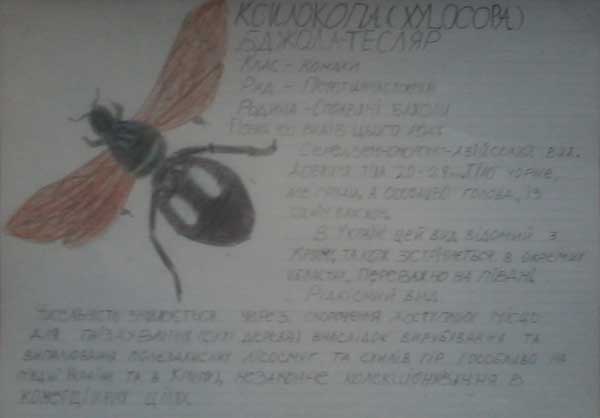 КСИЛОКОПА (XYLOCOPA)
БДЖОЛА-ТЕСЛЯР
Клас - Комахи
Ряд - Перетинчастокрилі
Родина - Справжні бджоли
видів цього роду
Середземноморсько-азійський вид.
Довжина тіла 20-28 Тіло чорне,
голова, із
В Україні цей вид відомий з
Криму, також зустрічається в окремих
областях, переважно на півдні.
Рідкісний вид.
Чисельність знижується через скорочення доступних місць
для гніздування (сухі дерева) внаслідок вирубування та
випалювання полезахисних лісосмуг та схилів гір (особливо на
півдні України та в Криму), незаконне колекціонування в
комерційних цілях.